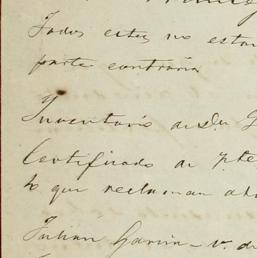 Todos estos no estan
parte contraria
Inventario de Dn G
Certificado de
lo que reclaman
Julian Garcia v. de